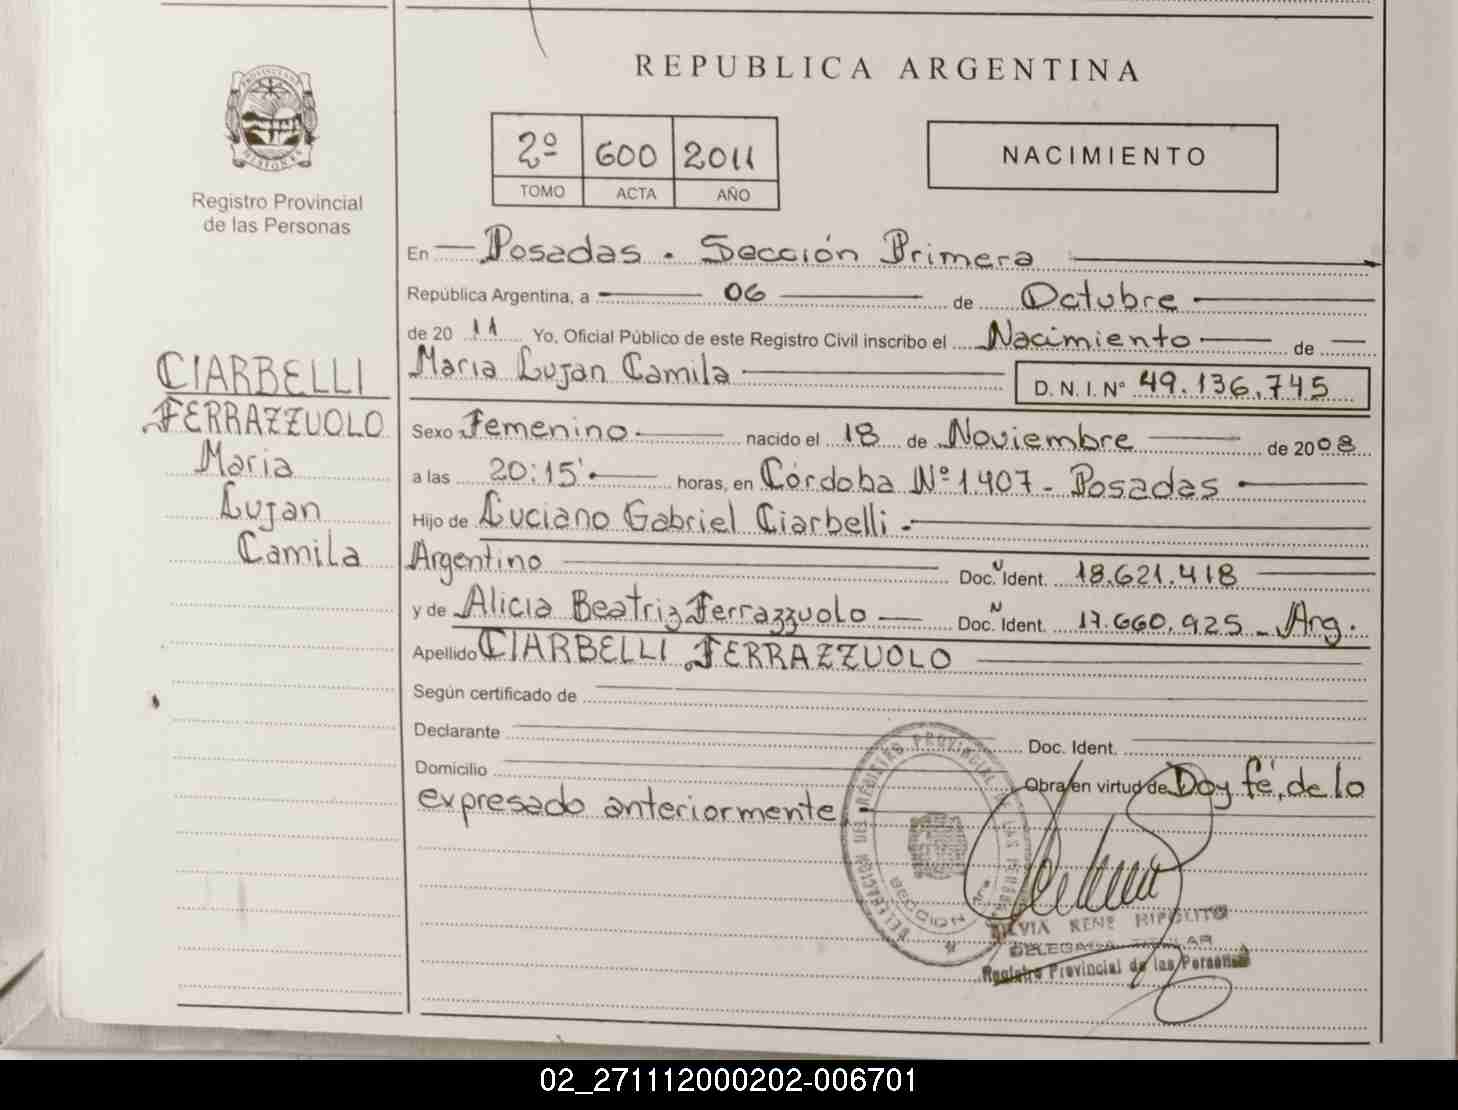 REPUBLICA ARGENTINA
PROVINCIA DE
MISIONES
Registro Provincial
de las Personas
2º 600 2011
TOMO ACTA AÑO
NACIMIENTO
En Posadas . Sección Primera
República Argentina, a 06 de Octubre
de 20 11 Yo, Oficial Público de este Registro Civil inscribo el Nacimiento de
Maria Lujan Camila D. N. I. Nº 49.136.745
CIARBELLI
FERRAZZUOLO
Maria
Lujan
Camila
Sexo Femenino nacido el 18 de Noviembre de 2008
a las 20:15' horas, en Córdoba Nº 1.407 - Posadas
Hijo de Luciano Gabriel Ciarbelli .-
Argentino Doc. Ident. 18.621.418
y de Alicia Beatriz Ferrazzuolo Doc. Ident. 17.660.925 - Arg.
Apellido CIARBELLI FERRAZZUOLO
Según certificado de
Declarante Doc. Ident.
Domicilio Obra en virtud de Doy fé, de lo
expresado anteriormente
DELEGACION DEL REGISTRO PROVINCIAL DE LAS PERSONAS
SECCION 1ra
SILVIA RENE HIPOLITO
DELEGADA TITULAR
Registro Provincial de las Personas
02_271112000202-006701